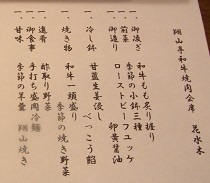 翔山亭和牛焼肉会席　花水木
一、御凌ぎ　和牛もも炙り握り
一、前菜　季節の小鉢三種
ローストビーフユッケ
卵黄醤油
一、冷し鉢　甘藍生姜浸し
べっこう餡
一、焼き物　和牛一頭盛り
季節の焼き野菜
一、進肴　酢取り野菜
一、御食事　手打ち盛岡冷麺
一、甘味　季節の羊羹　翔山焼き